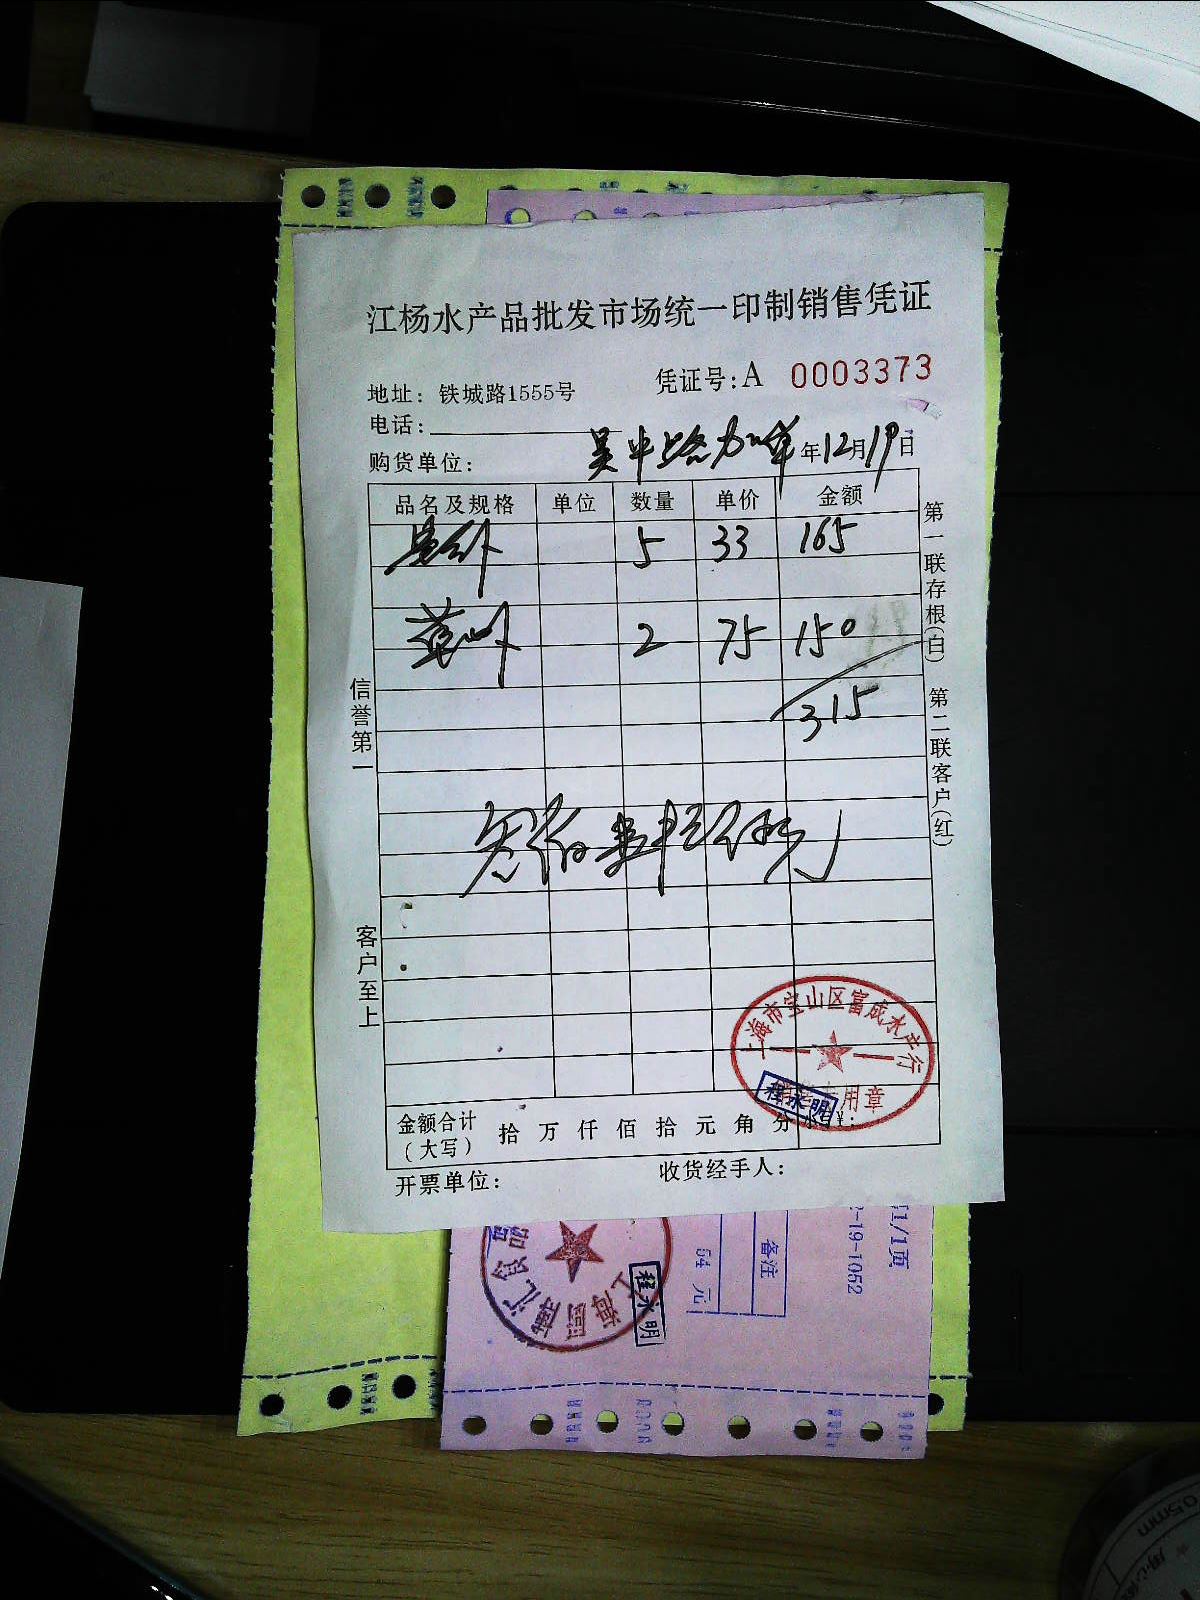 江杨水产品批发市场统一印制销售凭证
凭证号:A 0003373
地址: 铁城路1555号
电话:
购货单位: 吴中路 年12月19日
品名及规格 单位 数量 单价 金额
5 33 165
2 75 150
315
叁佰壹拾伍元
信誉第一
客户至上
第一联存根(白) 第二联客户(红)
上海市宝山区富成水产行
用章
程永明
金额合计(大写) 拾 万 仟 佰 拾 元 角 分 ¥:
开票单位: 收货经手人:
1/1页
-19-1052
备注
54 元
程永明